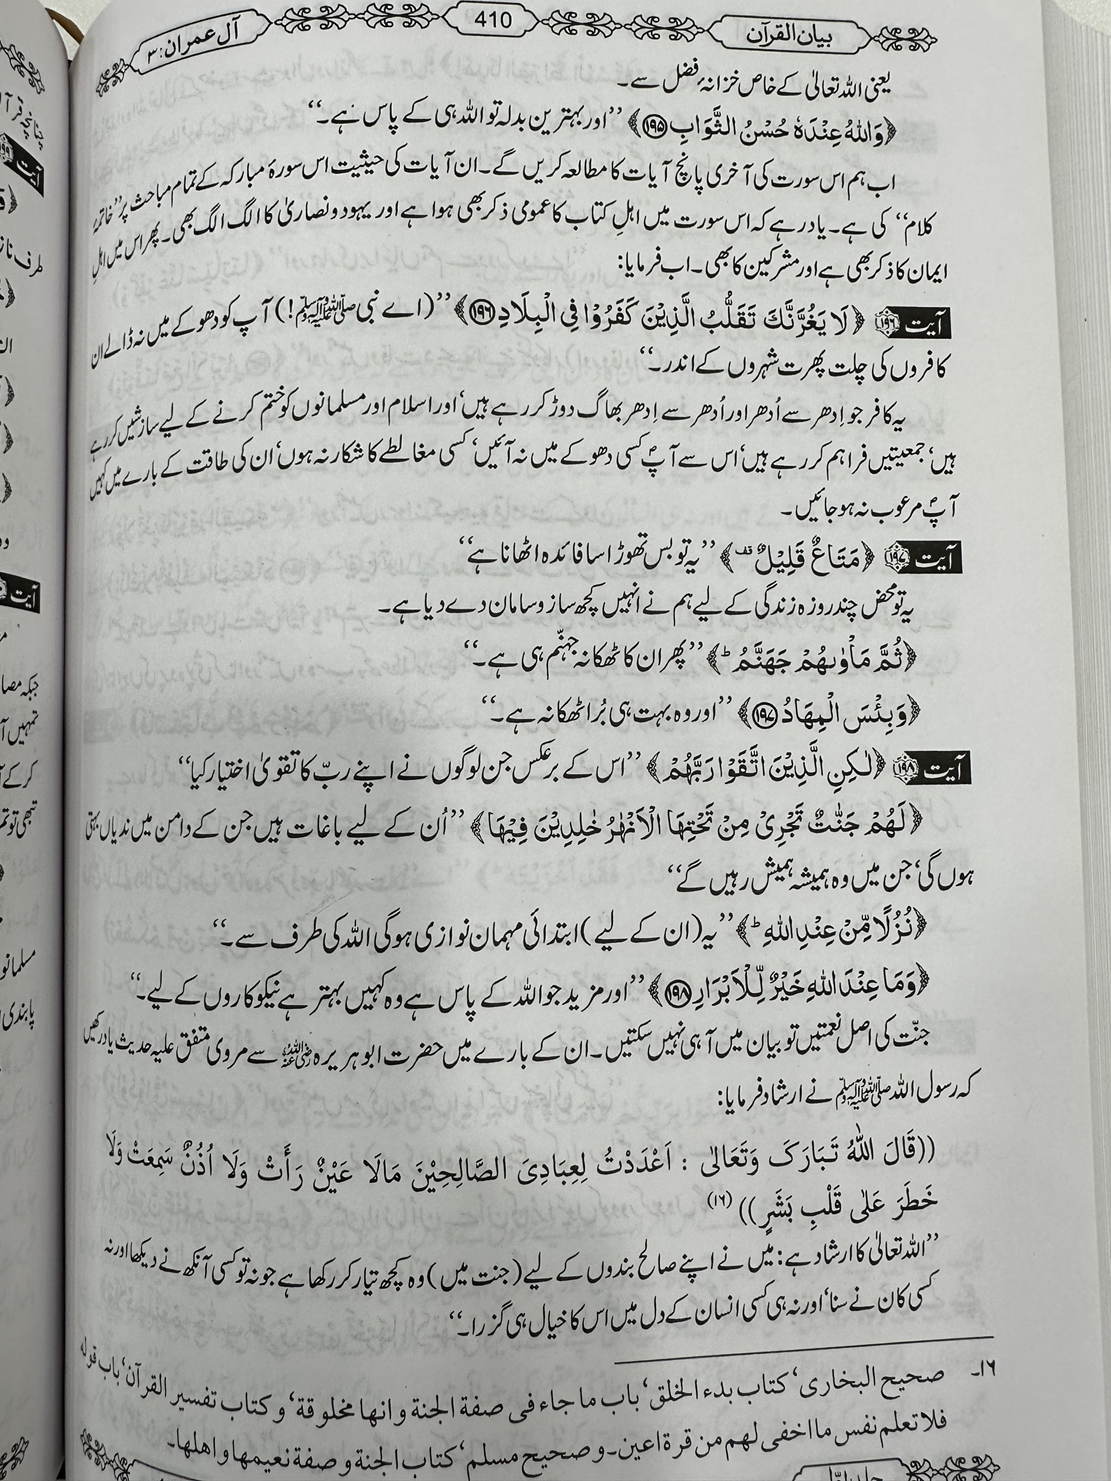 بیان القرآن
410
آل عمران: ۳
یعنی اللہ تعالیٰ کے خاص خزانۂ فضل سے۔
﴿وَاللّٰهُ عِنْدَهٗ حُسْنُ الثَّوَابِ ﴿۱۹۵﴾﴾ ’’اور بہترین بدلہ تو اللہ ہی کے پاس ہے۔‘‘
اب ہم اس سورت کی آخری پانچ آیات کا مطالعہ کریں گے۔ ان آیات کی حیثیت اس سورۂ مبارکہ کے تمام مباحث پر ’’خاتمۂ
کلام‘‘ کی ہے۔ یاد رہے کہ اس سورت میں اہلِ کتاب کا عمومی ذکر بھی ہوا ہے اور یہود و نصاریٰ کا الگ الگ بھی۔ پھر اس میں اہلِ
ایمان کا ذکر بھی ہے اور مشرکین کا بھی۔ اب فرمایا:
آیت ۱۹۶ ﴿لَا يَغُرَّنَّكَ تَقَلُّبُ الَّذِيْنَ كَفَرُوْا فِى الْبِلَادِ ﴿۱۹۶﴾﴾ ’’(اے نبی ﷺ!) آپ کو دھوکے میں نہ ڈالے ان
کافروں کی چلت پھرت شہروں کے اندر۔‘‘
یہ کافر جو اِدھر سے اُدھر اور اُدھر سے اِدھر بھاگ دوڑ کر رہے ہیں‘ اور اسلام اور مسلمانوں کو ختم کرنے کے لیے سازشیں کر رہے
ہیں‘ جمعیتیں فراہم کر رہے ہیں‘ اس سے آپؐ کسی دھوکے میں نہ آئیں‘ کسی مغالطے کا شکار نہ ہوں‘ ان کی طاقت کے بارے میں کہیں
آپؐ مرعوب نہ ہو جائیں۔
آیت ۱۹۷ ﴿مَتَاعٌ قَلِيْلٌ ۟قف﴾ ’’یہ تو بس تھوڑا سا فائدہ اٹھانا ہے‘‘
یہ تو محض چند روزہ زندگی کے لیے ہم نے انہیں کچھ ساز و سامان دے دیا ہے۔
﴿ثُمَّ مَاْوٰىهُمْ جَهَنَّمُ ؕ﴾ ’’پھر ان کا ٹھکانہ جہنّم ہی ہے۔‘‘
﴿وَبِئْسَ الْمِهَادُ ﴿۱۹۷﴾﴾ ’’اور وہ بہت ہی بُرا ٹھکانہ ہے۔‘‘
آیت ۱۹۸ ﴿لٰكِنِ الَّذِيْنَ اتَّقَوْا رَبَّهُمْ﴾ ’’اس کے برعکس جن لوگوں نے اپنے ربّ کا تقویٰ اختیار کیا‘‘
﴿لَهُمْ جَنّٰتٌ تَجْرِىْ مِنْ تَحْتِهَا الْاَنْهٰرُ خٰلِدِيْنَ فِيْهَا﴾ ’’اُن کے لیے باغات ہیں جن کے دامن میں ندیاں بہتی
ہوں گی‘ جن میں وہ ہمیشہ ہمیش رہیں گے‘‘
﴿نُزُلًا مِّنْ عِنْدِ اللّٰهِ ؕ﴾ ’’یہ (ان کے لیے) ابتدائی مہمان نوازی ہوگی اللہ کی طرف سے۔‘‘
﴿وَمَا عِنْدَ اللّٰهِ خَيْرٌ لِّلْاَبْرَارِ ﴿۱۹۸﴾﴾ ’’اور مزید جو اللہ کے پاس ہے وہ کہیں بہتر ہے نیکوکاروں کے لیے۔‘‘
جنّت کی اصل نعمتیں تو بیان میں آ ہی نہیں سکتیں۔ ان کے بارے میں حضرت ابوہریرہ رضی اللہ عنہ سے مروی متفق علیہ حدیث یاد رکھیں
کہ رسول اللہ ﷺ نے ارشاد فرمایا:
((قَالَ اللّٰهُ تَبَارَكَ وَتَعَالٰى : اَعْدَدْتُ لِعِبَادِىَ الصَّالِحِيْنَ مَالَا عَيْنٌ رَأَتْ وَلَا اُذُنٌ سَمِعَتْ وَلَا
خَطَرَ عَلٰى قَلْبِ بَشَرٍ)) (۱۶)
’’اللہ تعالیٰ کا ارشاد ہے: مَیں نے اپنے صالح بندوں کے لیے (جنت میں) وہ کچھ تیار کر رکھا ہے جو نہ تو کسی آنکھ نے دیکھا اور نہ
کسی کان نے سنا‘ اور نہ ہی کسی انسان کے دل میں اس کا خیال ہی گزرا۔‘‘
۱۶۔ صحیح البخاری‘ کتاب بدء الخلق‘ باب ما جاء فی صفة الجنة وانها مخلوقة‘ وکتاب تفسیر القرآن‘ باب قوله
فلا تعلم نفس ما اخفی لهم من قرة اعین۔ وصحیح مسلم‘ کتاب الجنة وصفة نعیمها واهلها۔